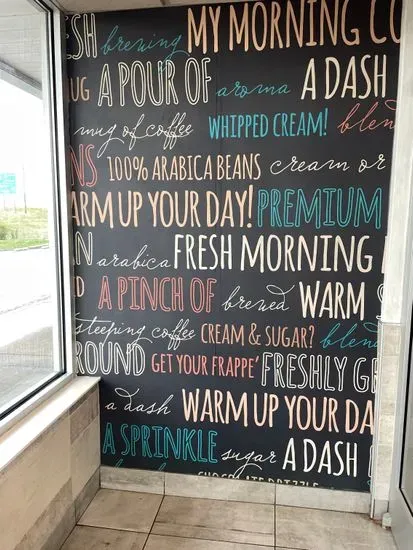 SH brewing MY MORNING CO
UG A POUR OF aroma A DASH
mug of coffee WHIPPED CREAM! blen
NS 100% ARABICA BEANS cream or
ARM UP YOUR DAY! PREMIUM
N arabica FRESH MORNING
D A PINCH OF brewed WARM
steeping coffee CREAM & SUGAR? blen
ROUND GET YOUR FRAPPE' FRESHLY G
a dash WARM UP YOUR DA
A SPRINKLE sugar A DASH
CHOCOLATE DRIZZLE